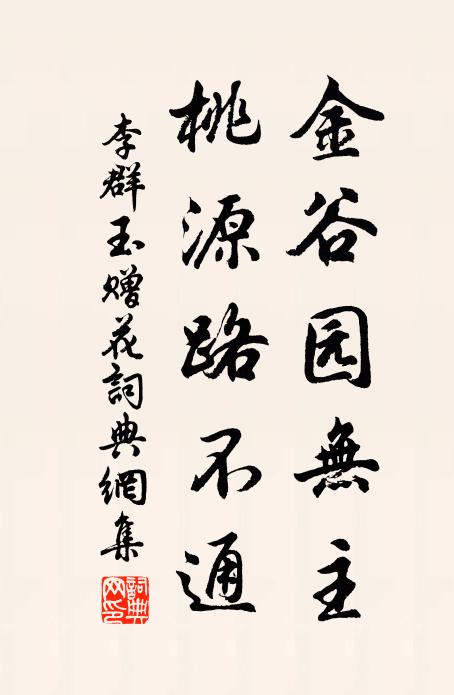 金谷园無主
桃源路不通
李群玉赠花詞典網集
詞典
网印